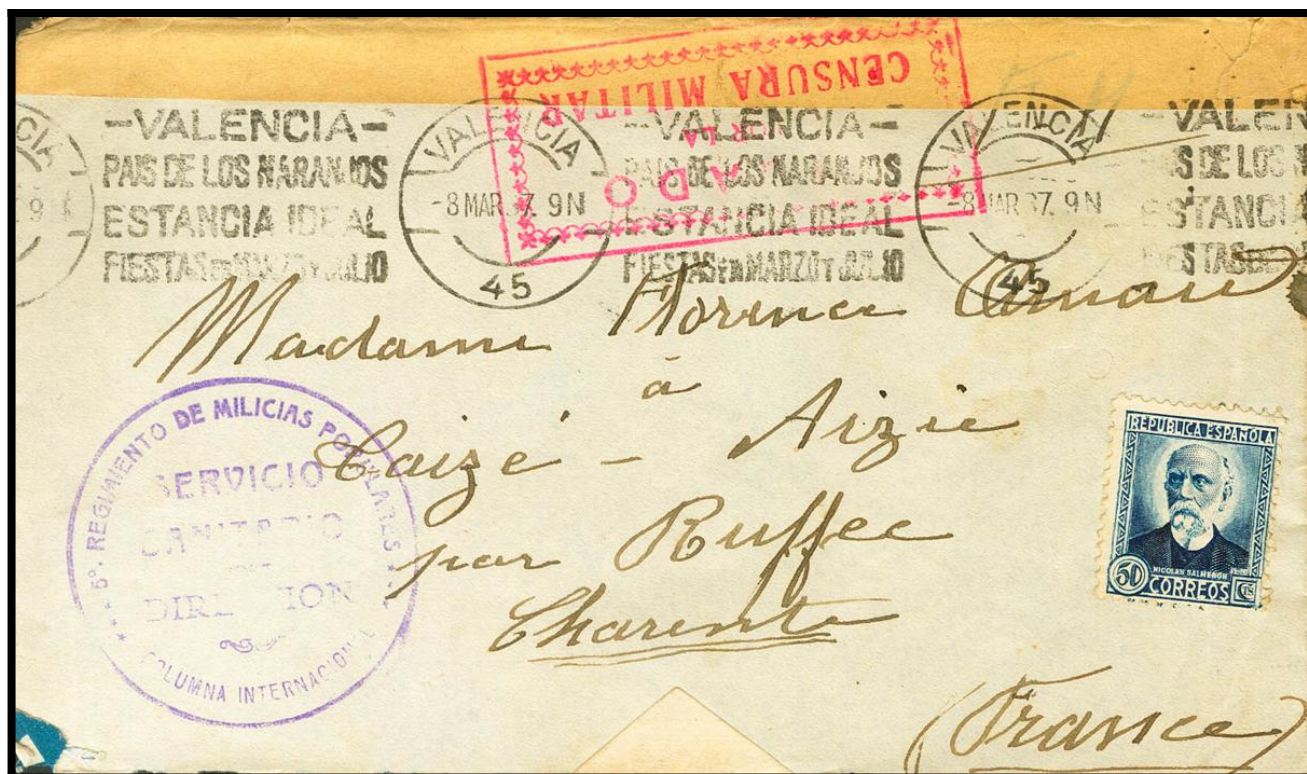 CENSURA MILITAR
POR LA
ADO
CIA
9
-VALENCIA-
PAIS DE LOS NARANJOS
ESTANCIA IDEAL
FIESTAS EN MARZO Y JULIO
VALENCIA
-8 MAR 37. 9N
45
-VALENCIA-
PAIS DE LOS NARANJOS
ESTANCIA IDEAL
FIESTAS EN MARZO Y JULIO
VALENCIA
-8 MAR 37. 9N
45
-VALEN
PAIS DE LOS N
ESTANCIA
FIESTAS
Madame Florence
à
Caizé - Aizie
par Ruffec
Charente
(France)
5º. REGIMIENTO DE MILICIAS POPULARES
SERVICIO
SANITARIO
DIRE ION
COLUMNA INTERNACION L
REPUBLICA ESPAÑOLA
NICOLAS SALMERON
50 CORREOS CTS